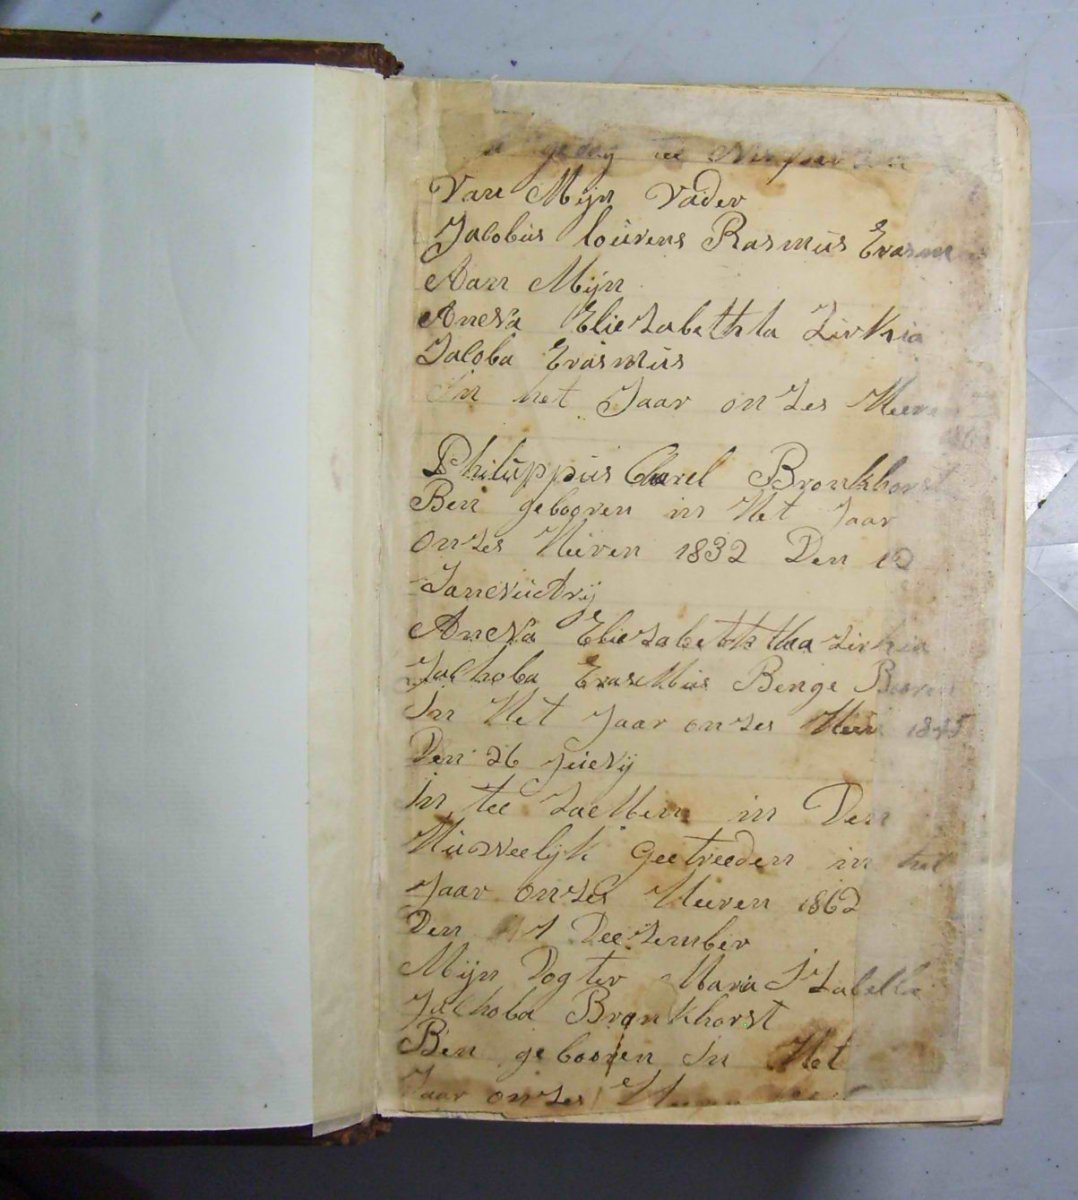 Van Mijn Vader
Jacobus lourens Rasmus Erasmus
Aan Mijn
Anesa Eliezabethta Zirkia
Jacoba Erasmus
In het Jaar onzes Heeren
Philuppus Carel Bronkhorst
Ben gebooren in Het Jaar
Onzes Heeren 1832 Den
Anesa Eliezabethta Zirkia
Jachoba Erasmus Benge Booren
In Het Jaar onzes Heer
Den 26 Juesij
in tee Zaemen in Den
Huweelijk Geetreeden in het
Jaar Onzes Heeren 1862
Den 1 Deezember
Mijn Dogter Maria Izabella
Jachoba Bronkhorst
Ben gebooren In Het
Jaar onzes